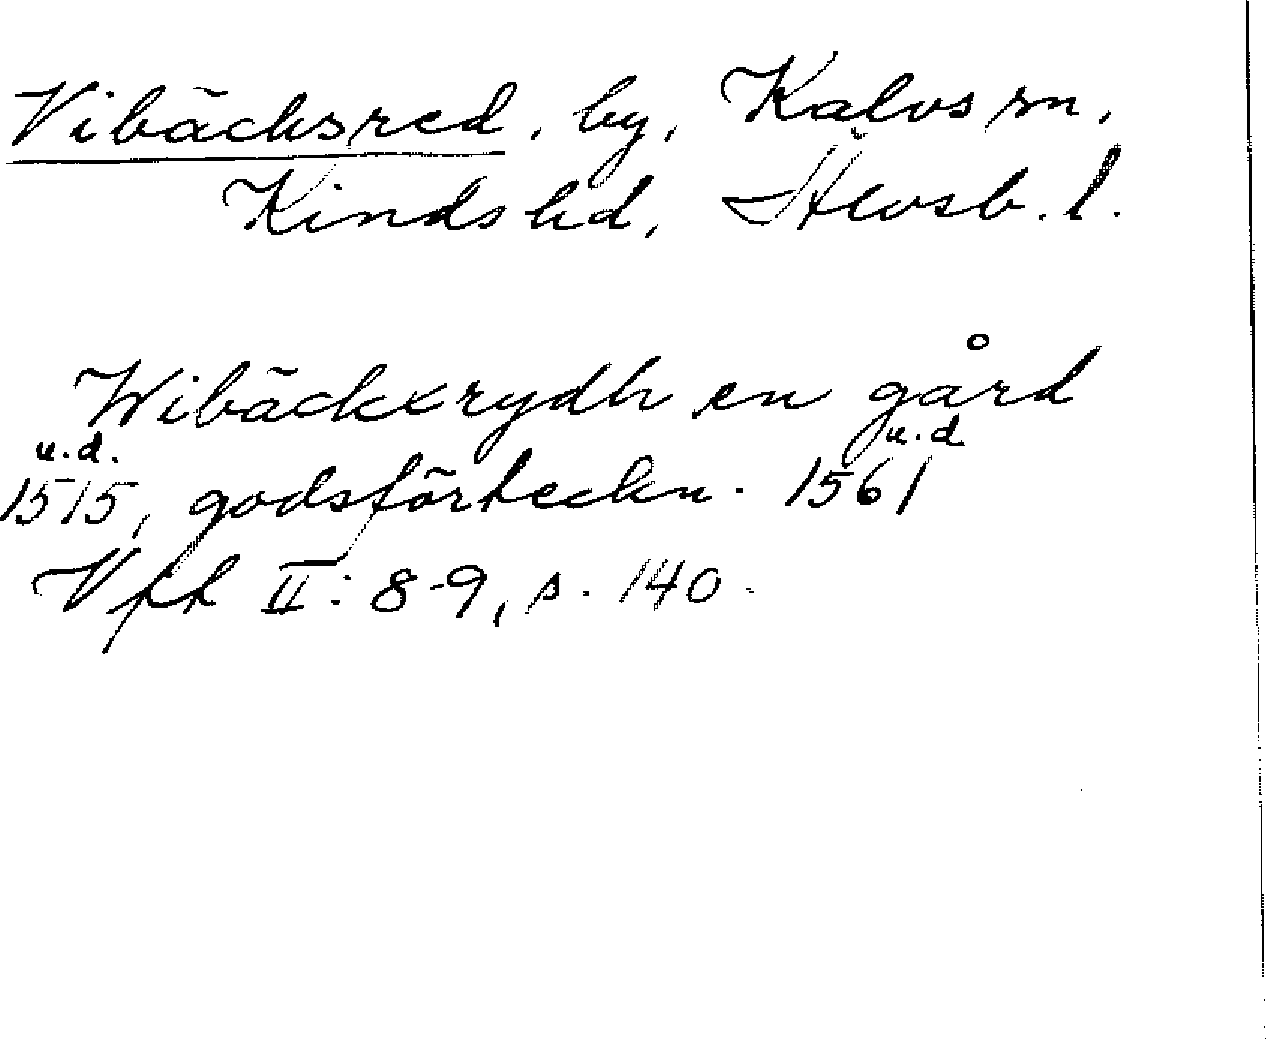 Vibäcksred, by, Kalvs sn,
Kinds hd, Älvsb. l.
Wibäckxrydh en gård
u.d. u.d
1515, godsförteckn. 1561
Vfth II: 8-9, s. 140.